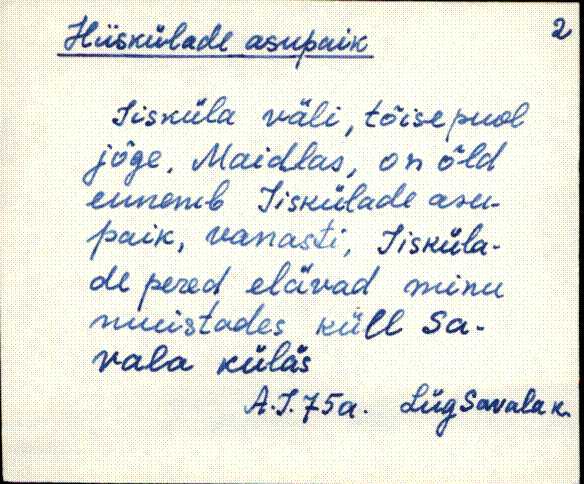 2
Hiiskülade asupaik
Iisküla väli, tõisepuol
jõge, Maidlas, on õld
ennemb Iiskülade asu-
paik, vanasti, Iisküla-
de pered elävad minu
muistades küll Sa-
vala küläs
A.I.75a. Lüg Savala k.